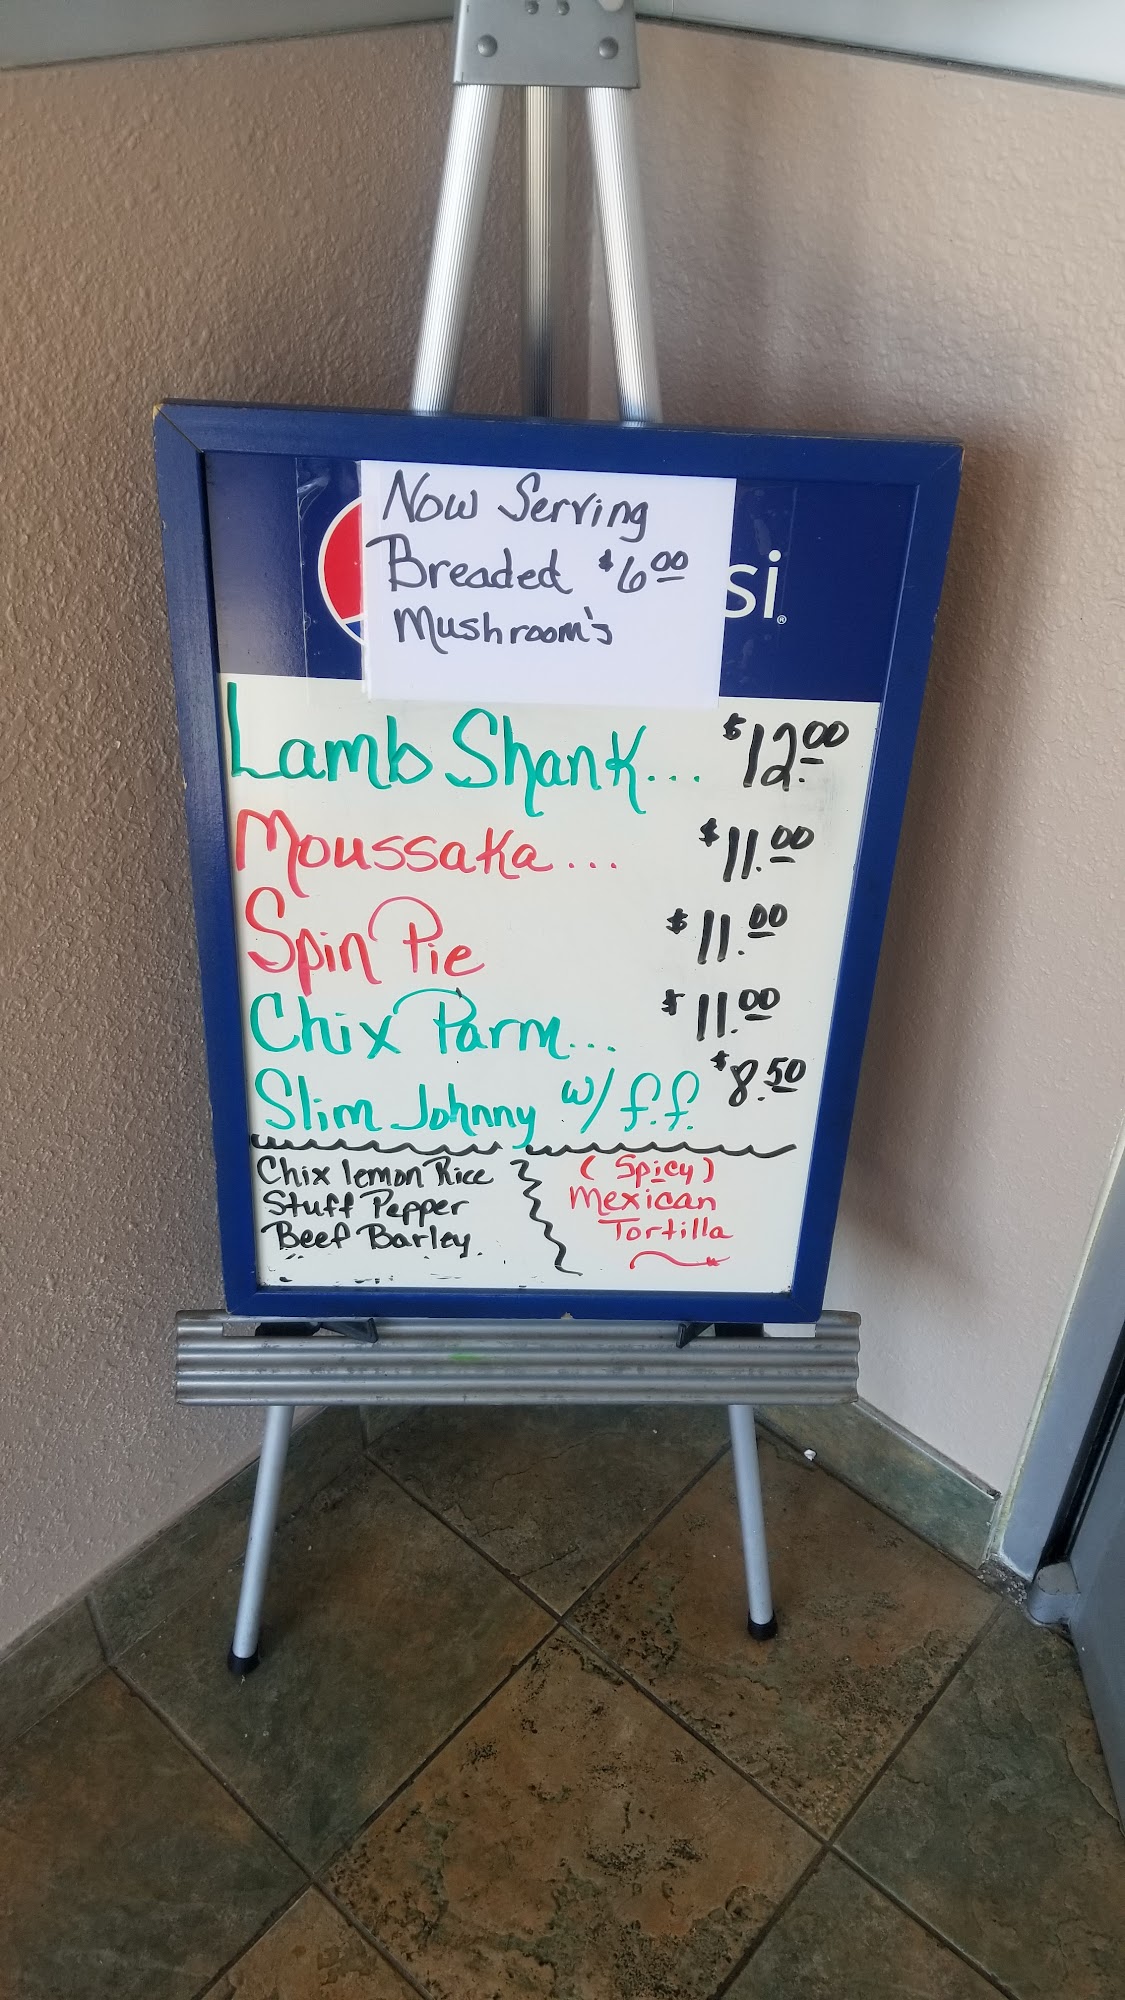 Now Serving
Breaded $6.00
Mushroom's
si®
Lamb Shank... $12.00
Moussaka... $11.00
Spin Pie $11.00
Chix Parm... $11.00
Slim Johnny w/ f.f. $8.50
Chix lemon Rice
Stuff Pepper
Beef Barley
(Spicy)
Mexican
Tortilla